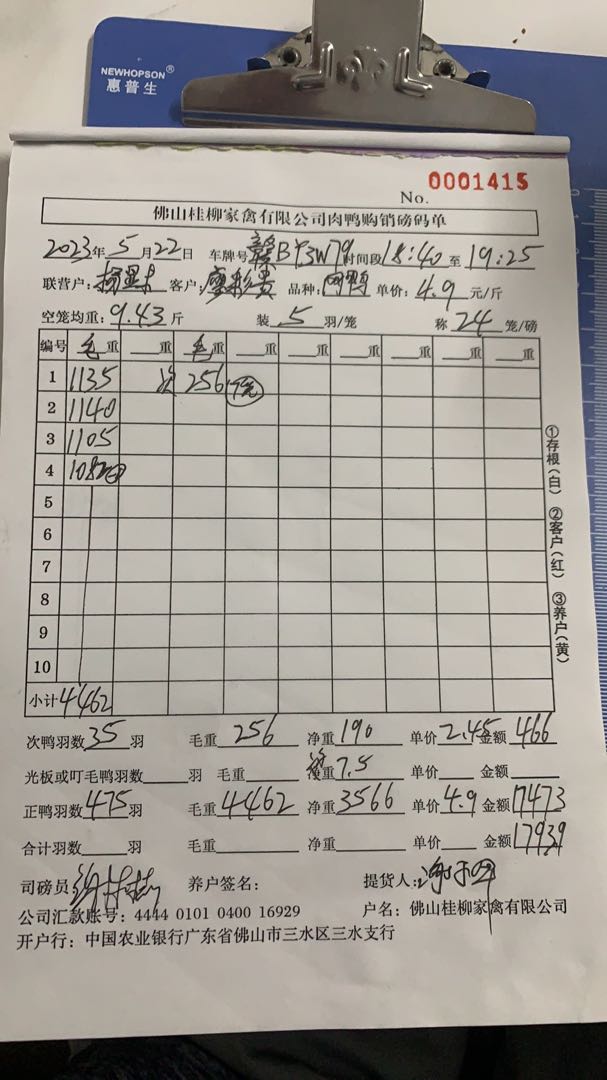 NEWHOPSON®
惠普生
No. 0001415
佛山桂柳家禽有限公司肉鸭购销磅码单
2023年5月22日 车牌号赣B 3W79 时间段18:40至19:25
联营户: 客户:廖彩贵 品种: 单价:4.9元/斤
空笼均重:9.43斤 装5羽/笼 称24笼/磅
编号 毛重 重 毛重 重 重 重 重 重
1 1135 次 256
2 1140
3 1105
4 1082
5
6
7
8
9
10
小计 4462
次鸭羽数35羽 毛重256 净重190 单价2.45 金额466
光板或叮毛鸭羽数 羽 毛重 重7.5 单价 金额
正鸭羽数475羽 毛重4462 净重3566 单价4.9 金额17473
合计羽数 羽 毛重 净重 单价 金额17939
司磅员 养户签名: 提货人:
公司汇款账号:4444 0101 0400 16929 户名:佛山桂柳家禽有限公司
开户行:中国农业银行广东省佛山市三水区三水支行
①存根(白) ②客户(红) ③养户(黄)